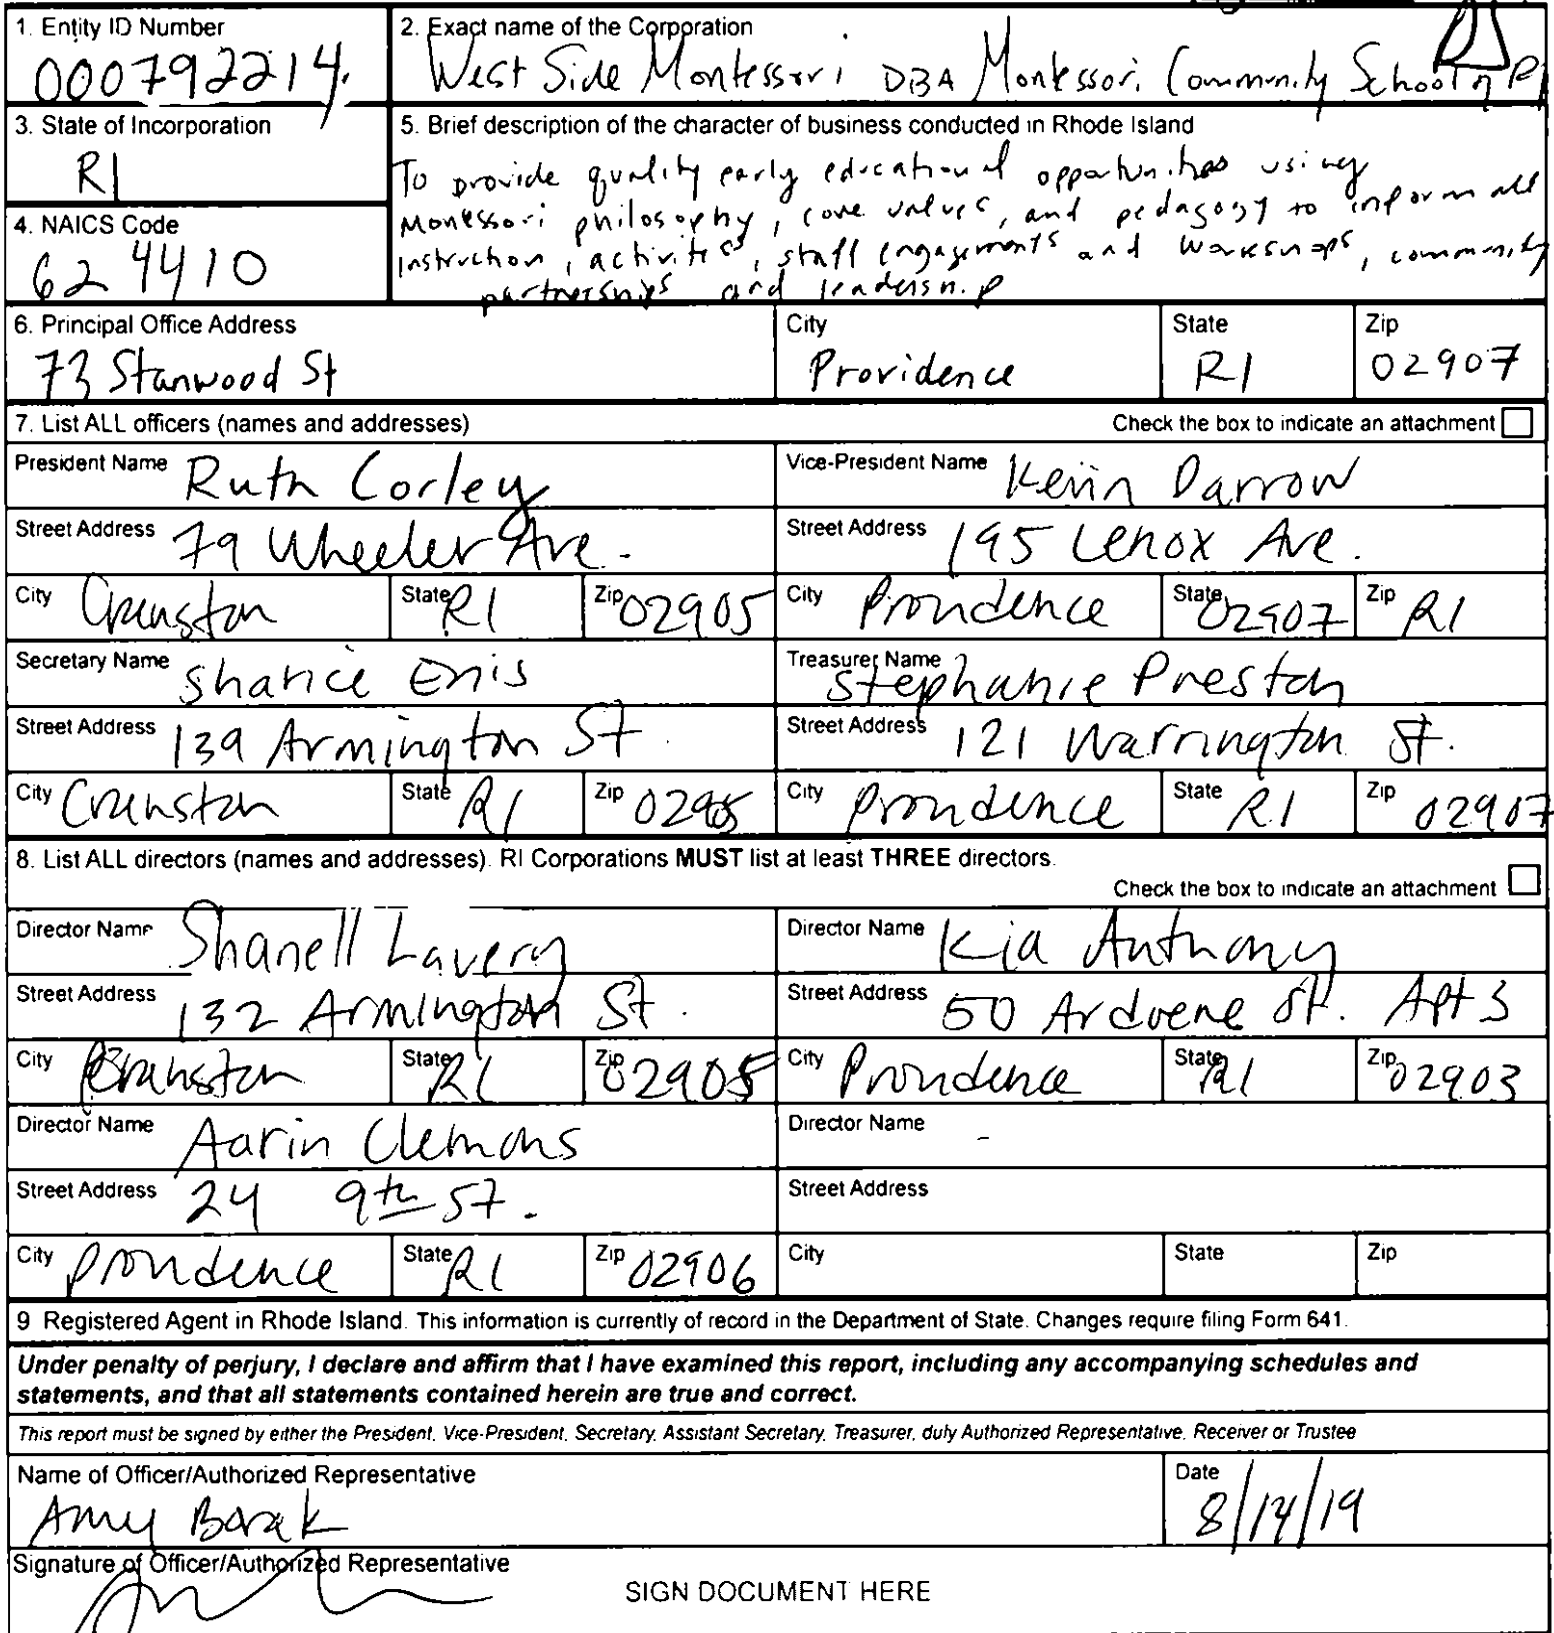 1. Entity ID Number
000792214.
2. Exact name of the Corporation
West Side Montessori DBA Montessori Community School of RI
3. State of Incorporation
RI
5. Brief description of the character of business conducted in Rhode Island
To provide quality early educational opportunities using
Montessori philosophy, core values, and pedagogy to inform all
instruction, activities, staff engagements and workshops, community
partnerships and leadership
4. NAICS Code
624410
6. Principal Office Address
73 Stanwood St
City
Providence
State
RI
Zip
02907
7. List ALL officers (names and addresses)
Check the box to indicate an attachment
President Name Ruth Corley
Vice-President Name Kevin Darrow
Street Address 79 Wheeler Ave.
Street Address 195 Lenox Ave.
City Cranston State RI Zip 02905
City Providence State 02907 Zip RI
Secretary Name Sharice Enis
Treasurer Name Stephanie Preston
Street Address 139 Armington St.
Street Address 121 Warrington St.
City Cranston State RI Zip 02905
City Providence State RI Zip 02907
8. List ALL directors (names and addresses). RI Corporations MUST list at least THREE directors.
Check the box to indicate an attachment
Director Name Shanell Lavery
Director Name Kia Anthony
Street Address 132 Armington St.
Street Address 50 Ardoene St. Apt 3
City Cranston State RI Zip 02905
City Providence State RI Zip 02903
Director Name Aarin Clemons
Director Name
Street Address 24 9th St.
Street Address
City Providence State RI Zip 02906
City State Zip
9 Registered Agent in Rhode Island. This information is currently of record in the Department of State. Changes require filing Form 641.
Under penalty of perjury, I declare and affirm that I have examined this report, including any accompanying schedules and
statements, and that all statements contained herein are true and correct.
This report must be signed by either the President, Vice-President, Secretary, Assistant Secretary, Treasurer, duly Authorized Representative, Receiver or Trustee
Name of Officer/Authorized Representative
Amy Borak
Date
8/14/19
Signature of Officer/Authorized Representative
SIGN DOCUMENT HERE